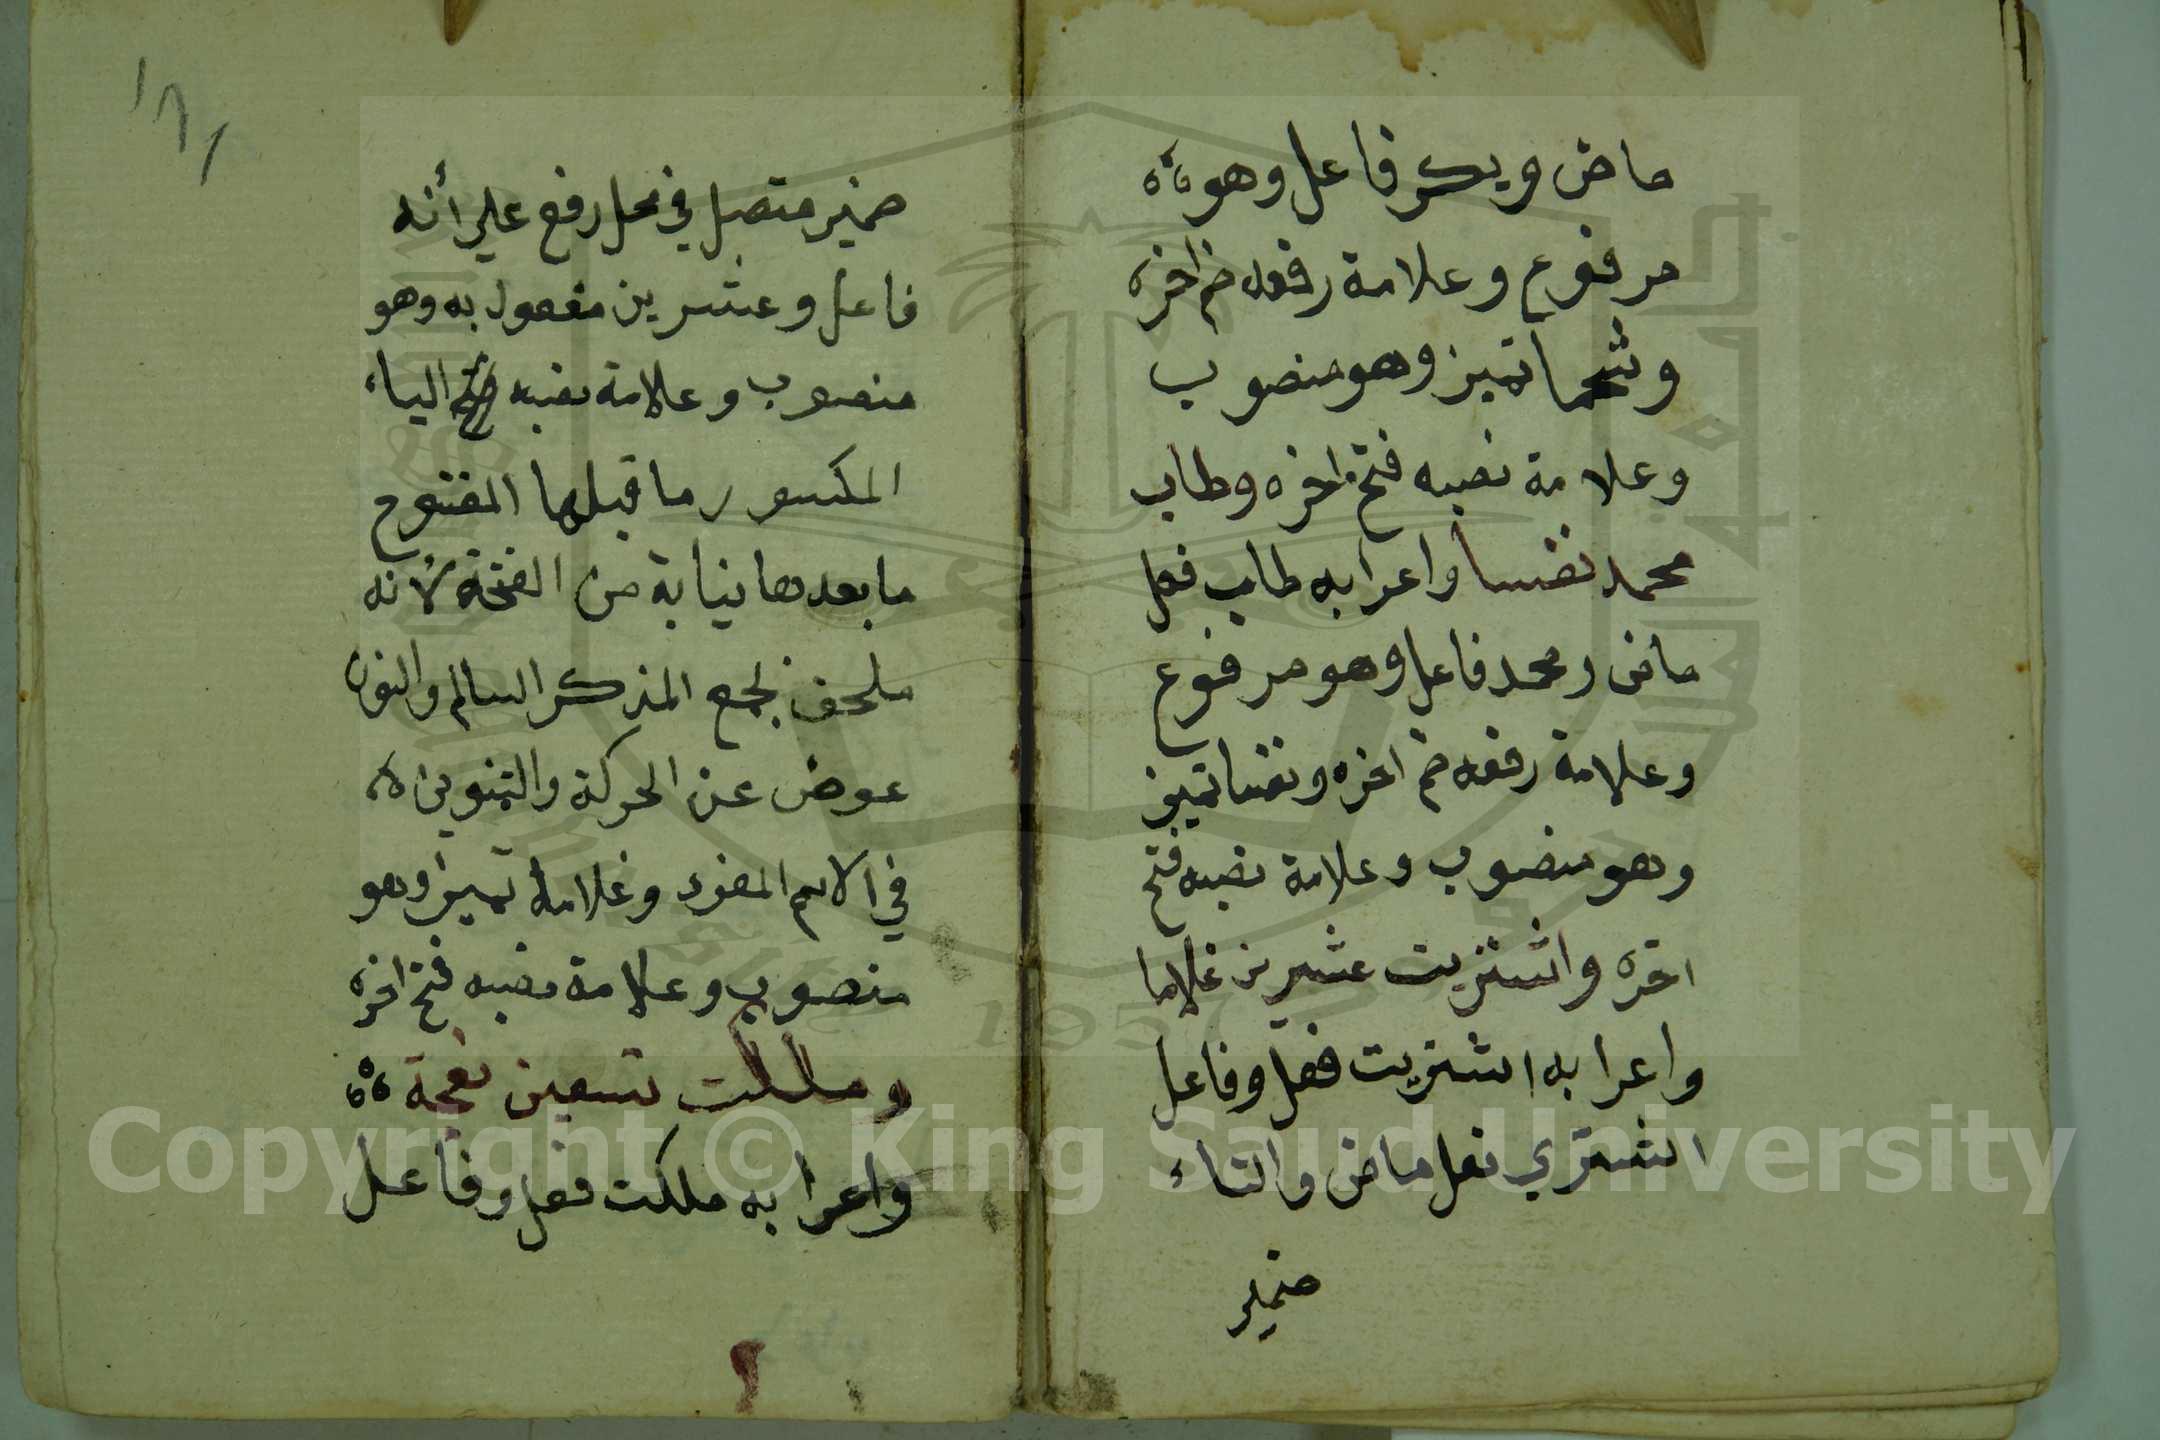 ماض وبكر فاعل وهو
مرفوع وعلامة رفعه ضم اخره
وشحما تميز وهو منصوب
وعلامة نصبه فتح اخره وطاب
محمد نفسا واعرابه طاب فعل
ماض ومحمد فاعل وهو مرفوع
وعلامة رفعه ضم اخره ونفسا تميز
وهو منصوب وعلامة نصبه فتح
اخره واشتريت عشرين غلاما
واعرابه اشتريت فعل وفاعل
اشتري فعل ماض والتاء
ضمير
١٨١
ضمير متصل في محل رفع علي أنه
فاعل وعشرين مفعول به وهو
منصوب وعلامة نصبه الياء
المكسور ما قبلها المفتوح
ما بعدها نيابة عن الفتحة لأنه
ملحق بجمع المذكر السالم والنون
عوض عن الحركة والتنوين
في الاسم المفرد وغلاما تميز وهو
منصوب وعلامة نصبه فتح اخره
وملكت تسعين نعجة
واعرابه ملكت فعل وفاعل
1957
Copyright © King Saud University